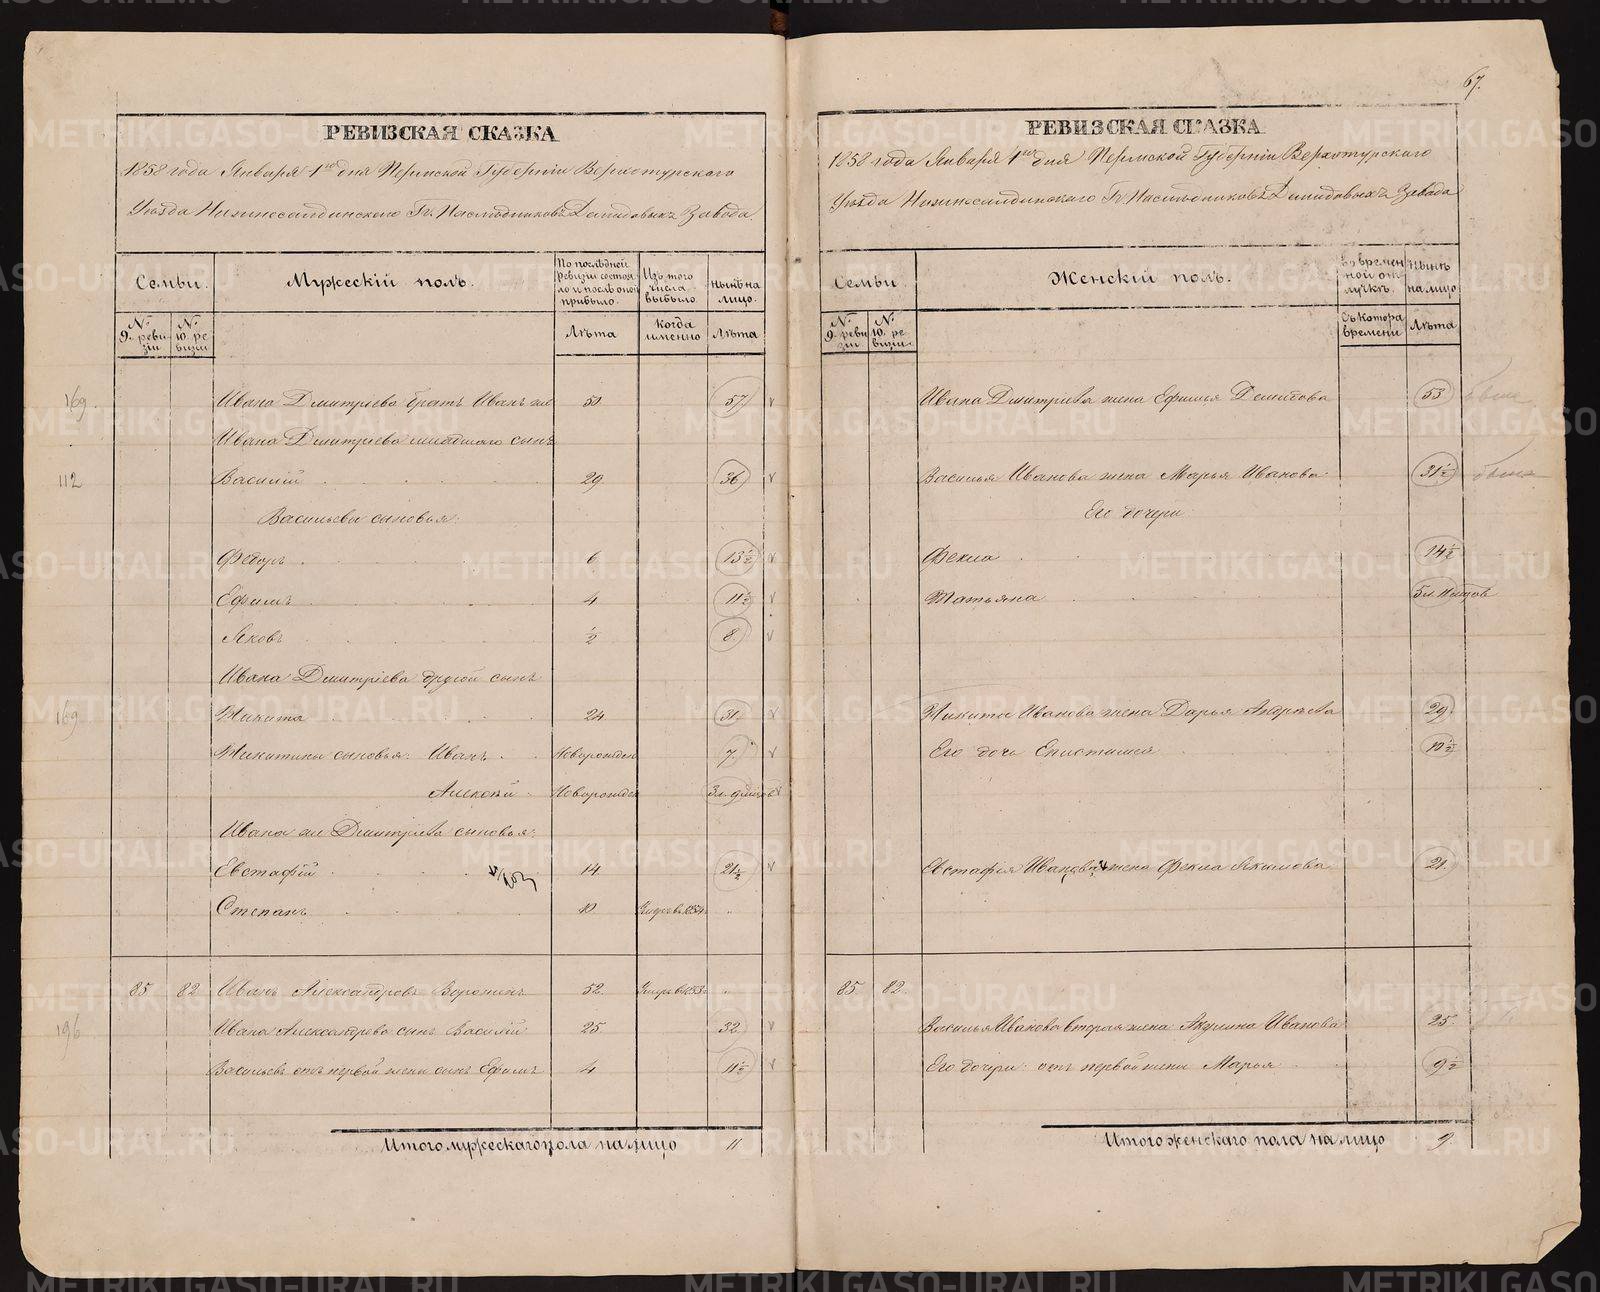 67.
РЕВИЗСКАЯ СКАЗКА
1858 года Января 1го дня Пермской Губерніи Верхотурскаго
Уѣзда Нижнесалдинскаго Гг. Наслѣдниковъ Демидовыхъ Завода
Семьи.
Мужескій полъ.
По послѣдней ревизіи состояло и послѣ оной прибыло.
Изъ того числа выбыло
Нынѣ на лицо.
№ 9. ревизіи
№ 10. ревизіи
Лѣта
Когда именно
Лѣта
169 Ивана Дмитріева братъ Иванъ же 50 57 v
Ивана Дмитріева младшаго сынъ
112 Василій 29 36 v
Васильевы сыновья:
Федоръ 6 13½ v
Ефимъ 4 11½ v
Яковъ ½ 8. v
Ивана Дмитріева другой сынъ
169 Никита 24 31. v
Никитины сыновья: Иванъ Новорожден 7. v
Алексѣй Новорожден v
Ивана же Дмитріева сыновья:
Евстафій 14 21½ v
Степанъ 10 1854
85 82 Иванъ Александровъ Воронинъ 52. 1853
196 Ивана Александрова сынъ Василій 25 32. v
Васильевъ отъ первой жены сынъ Ефимъ 4 11½ v
Итого мужескаго пола на лицо 11
РЕВИЗСКАЯ СКАЗКА
1858 года Января 1го дня Пермской Губерніи Верхотурскаго
Уѣзда Нижнесалдинскаго Гг. Наслѣдниковъ Демидовыхъ Завода
Семьи.
Женскій полъ.
Во временной отлучкѣ.
Нынѣ на лицо
№ 9. ревизіи
№ 10. ревизіи
Съ котора времени
Лѣта
Ивана Дмитріева жена Ефимья Демидова 53
Василья Иванова жена Марья Иванова 31½
Его дочери:
Фекла 14½
Татьяна
Никиты Иванова жена Дарья Андреева 29.
Его дочь Епистимея 10½
Евстафія Иванова жена Фекла Якимова 21.
85. 82.
Василья Иванова вторая жена Акулина Иванова 25.
Его дочери: отъ первой жены Марья 9½
Итого женскаго пола на лицо 9.
METRIKI.GASO-URAL.RU